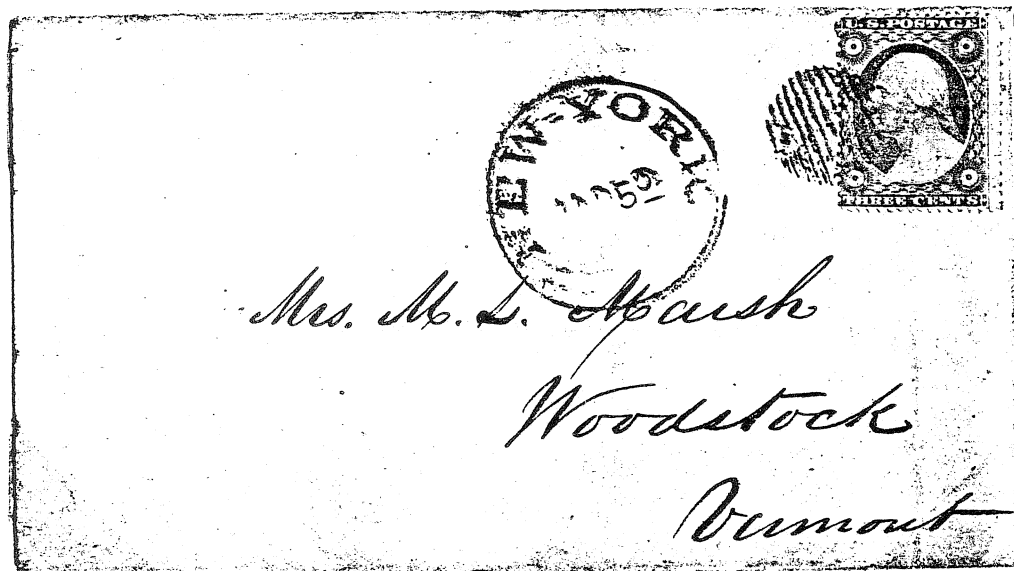 U.S. POSTAGE
THREE CENTS
NEW-YORK
Mrs. M. L. Marsh
Woodstock
Vermont